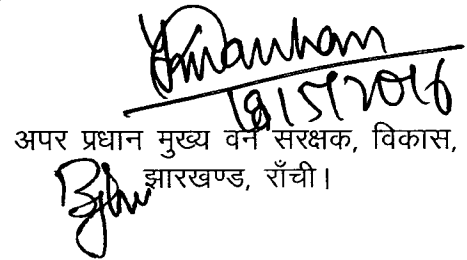 18/5/2016
अपर प्रधान मुख्य वन संरक्षक, विकास,
झारखण्ड, राँची।